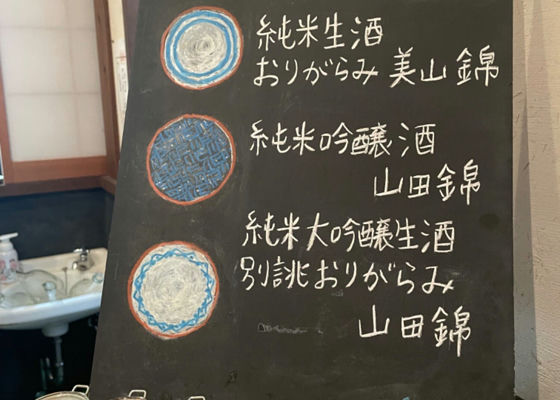 純米生酒
おりがらみ 美山錦
純米吟醸酒
山田錦
純米大吟醸生酒
別誂おりがらみ
山田錦